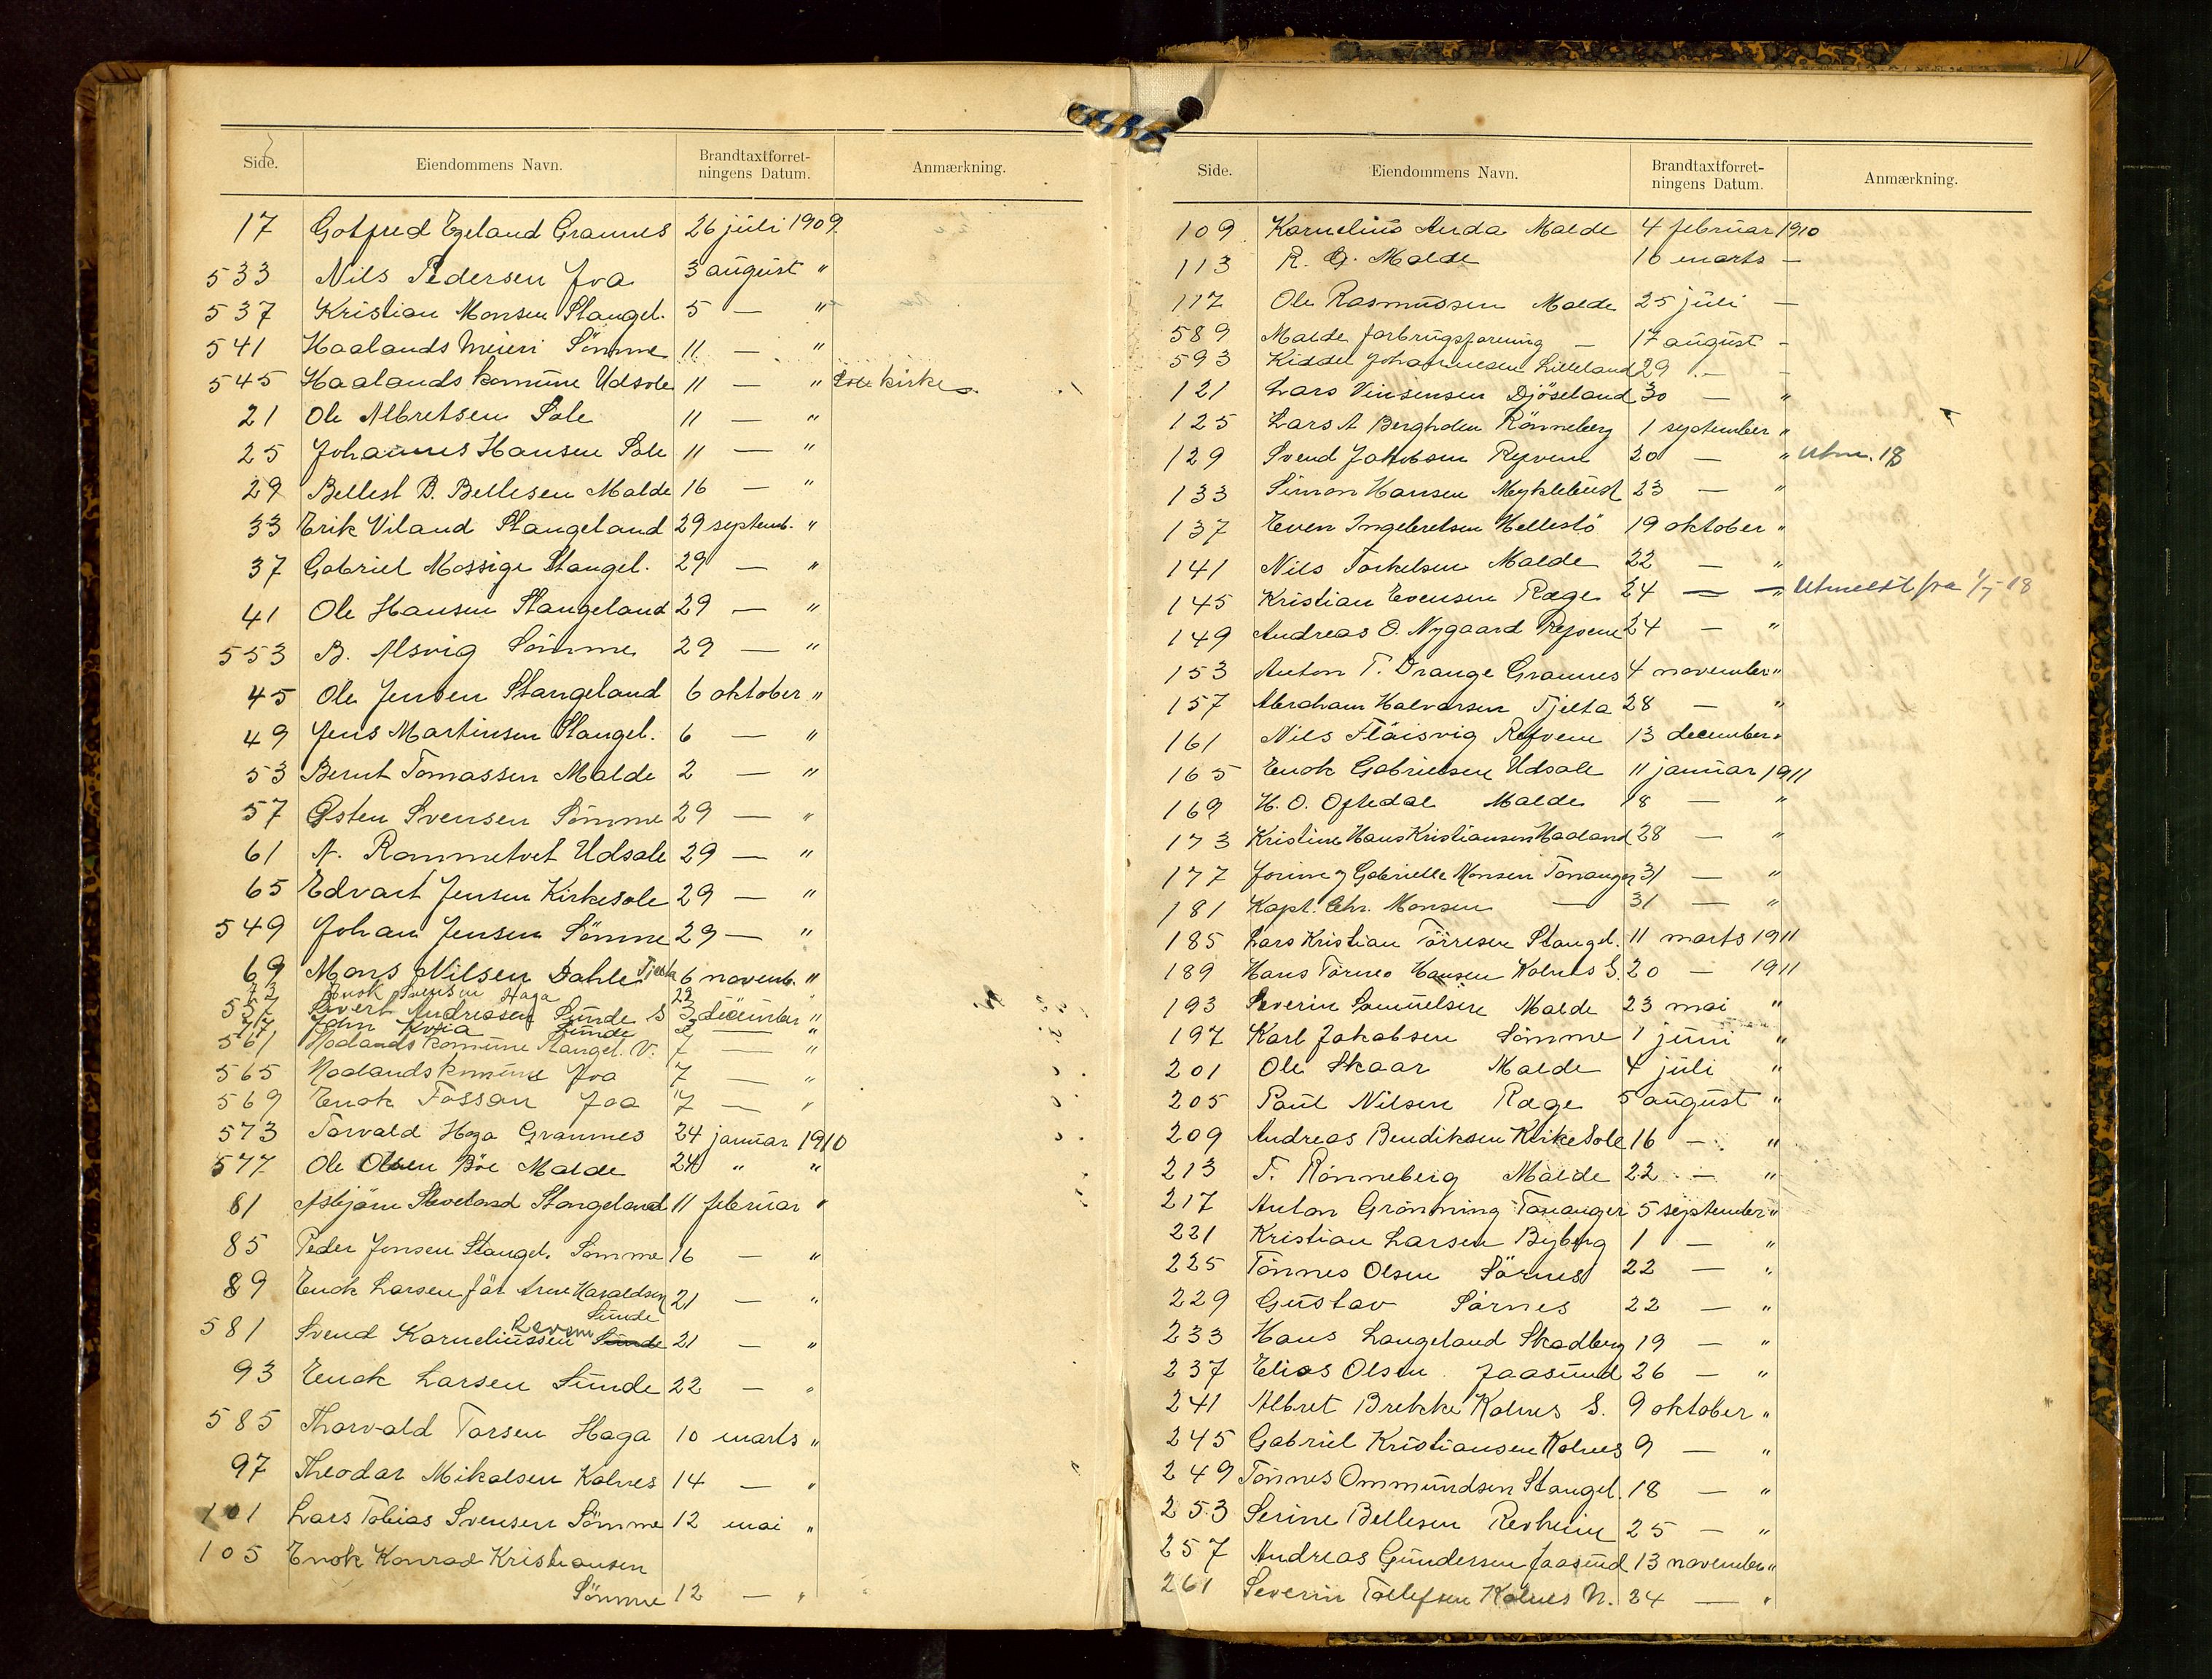 Side. Eiendommens Navn. Brandtaxtforret-ningens Datum. Anmærkning.
17 Gotfred Egeland Grannes 26 juli 1909.
533 Nils Pedersen Joa 3 august "
537 Kristian Monsen Stangel. 5 — "
541 Haalands Meieri Sömme 11 — "
545 Haalands komune Udsole 11 — " Sole kirke
21 Ole Albretsen Sole 11 — "
25 Johannes Hansen Sole 11 — "
29 Bellest B. Bellesen Malde 16 — "
33 Erik Viland Stangeland 29 septemb. "
37 Gabriel Mossige Stangel. 29 — "
41 Ole Hansen Stangeland 29 — "
553 B. Alsvig Sömme 29 — "
45 Ole Jensen Stangeland 6 oktober "
49 Jens Martinsen Stangel. 6 — "
53 Bernt Tomassen Malde 2 — "
57 Østen Svensen Sömme 29 — "
61 A. Rommetvet Udsole 29 — "
65 Edvart Jensen Kirkesole 29 — "
549 Johan Jensen Sömme 29 — "
69 Mons Nilsen Dahle Tjelta 6 novemb. "
73 Enok Svensen Haga 22 "
557 Sivert Andressen Sunde S 3 december "
77 John Kvia Sunde 3 — "
561 Haalands komune Stangel. V. 7 — "
565 Haalands komune Joa 7 — "
569 Enok Fossan Joa 7 — "
573 Torvald Haga Grannes 24 januar 1910
577 Ole Olsen Böe Malde 24 " "
81 Asbjörn Skveland Stangeland 11 februar "
85 Peder Jonsen Stangel. Sömme 16 — "
89 Enok Larsen får Arne Haraldsen Sunde 21 — "
581 Svend Korneliussen Sunde Revem 21 — "
93 Enok Larsen Sunde 22 — "
585 Thorvald Torsen Haga 10 marts "
97 Theodor Mikalsen Kolnes 14 — "
101 Lars Tobias Svensen Sömme 12 mai "
105 Enok Konrad Kristiansen
Sömme 12 — "
Side. Eiendommens Navn. Brandtaxtforret-ningens Datum. Anmærkning.
109 Kornelius Anda Malde 4 februar 1910
113 R. G. Malde 10 marts —
117 Ole Rasmussen Malde 25 juli —
589 Malde forbrugsforening — 17 august -
593 Kiddel Johannesen Lilleland 29 — -
121 Lars Vinsensen Djöseland 30 — "
125 Lars A Bergholm Rönneberg 1 september "
129 Svend Jakobsen Refvem 20 — " Utm. 18
133 Simon Hansen Myklebust 23 — "
137 Even Ingebretsen Hellestö 19 oktober "
141 Nils Torkelsen Malde 22 — "
145 Kristian Evensen Ræge 24 — " Utmeldt fra 1/7-18
149 Andreas O. Nygaard Refvem 24 — "
153 Anton T. Orange Grannes 4 november "
157 Abraham Halvorsen Tjelta 28 — "
161 Nils Flåisvig Refvem 13 december "
165 Enok Gabrielsen Udsole 11 januar 1911
169 H. O. Oftedal Malde 18 — "
173 Kristine Hans Kristiansen Haaland 28 — "
177 Jorine og Gabrielle Monsen Tananger 31 — "
181 Kapt. Chr. Monsen — 31 — "
185 Lars Kristian Törresen Stangel. 11 marts 1911
189 Hans Törnes Hansen Kolnes S. 20 — 1911
193 Severin Samuelsen Malde 23 mai "
197 Karl Jakobsen Sömme 1 juni "
201 Ole Skaar Malde 4 juli "
205 Paul Nilsen Ræge 5 august "
209 Andreas Bendiksen KirkeSole 16 — "
213 T. Rönneberg Malde 22 — "
217 Anton Grönning Tananger 5 september "
221 Kristian Larsen Byberg 1 — "
225 Tönnes Olsen Sörnes 22 — "
229 Gustav Sörnes 22 — "
233 Hans Langeland Skadberg 19 — "
237 Elias Olsen Jaasund 26 — "
241 Albret Brekke Kolnes S. 9 oktober "
245 Gabriel Kristiansen Kolnes 9 — "
249 Tönnes Ommundsen Stangel. 18 — "
253 Serine Bellesen Revheim 25 — "
257 Andreas Gundersen Jaasund 13 november "
261 Severin Tollefsen Kolnes N. 24 — "